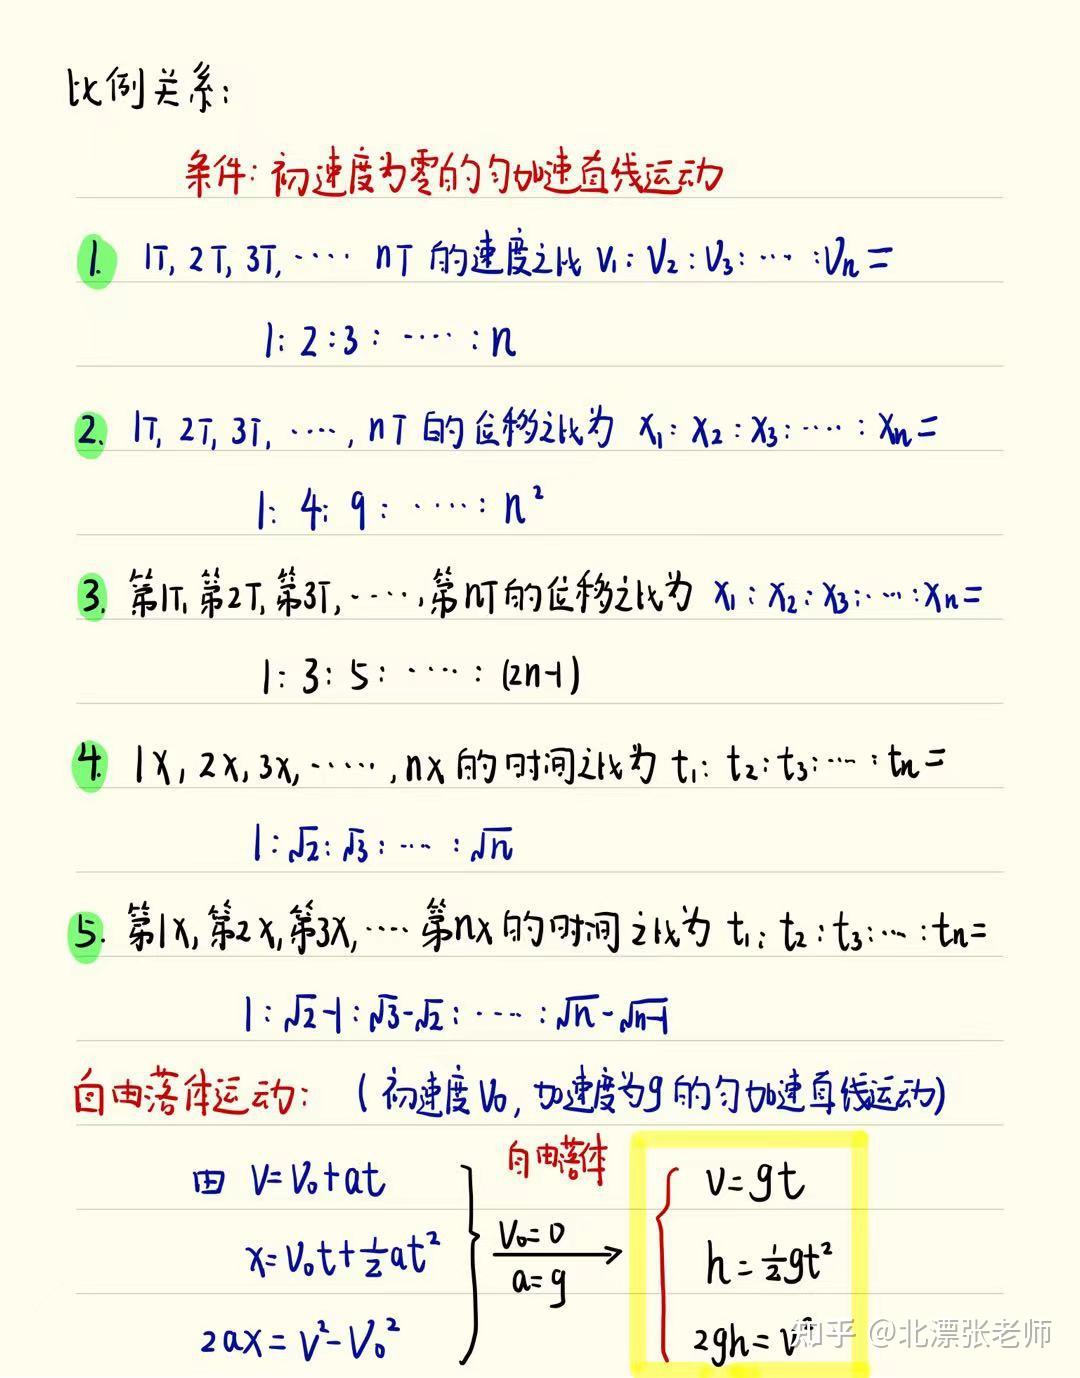 比例关系:
条件: 初速度为零的匀加速直线运动
1. 1T, 2T, 3T, ····· nT 的速度之比 V₁: V₂: V₃: ···· :Vn =
1: 2: 3: ····· : n
2. 1T, 2T, 3T, ····, nT 的位移之比为 x₁: x₂: x₃: ····· : xn =
1: 4: 9: ····· : n²
3. 第1T, 第2T, 第3T, ·····, 第nT的位移之比为 x₁: x₂: x₃: ···· : xn =
1: 3: 5: ····· : (2n-1)
4. 1x, 2x, 3x, ·····, nx 的时间之比为 t₁: t₂: t₃: ···· : tn =
1: √2: √3: ···· : √n
5. 第1x, 第2x, 第3x, ···· 第nx 的时间之比为 t₁: t₂: t₃: ···· : tn =
1: √2-1: √3-√2: ····· : √n-√n-1
自由落体运动: (初速度V₀, 加速度为g的匀加速直线运动)
由 V=V₀+at
x=V₀t+½at²
2ax=V²-V₀²
自由落体
V₀=0
a=g
V=gt
h=½gt²
2gh=V²
知乎 @北漂张老师